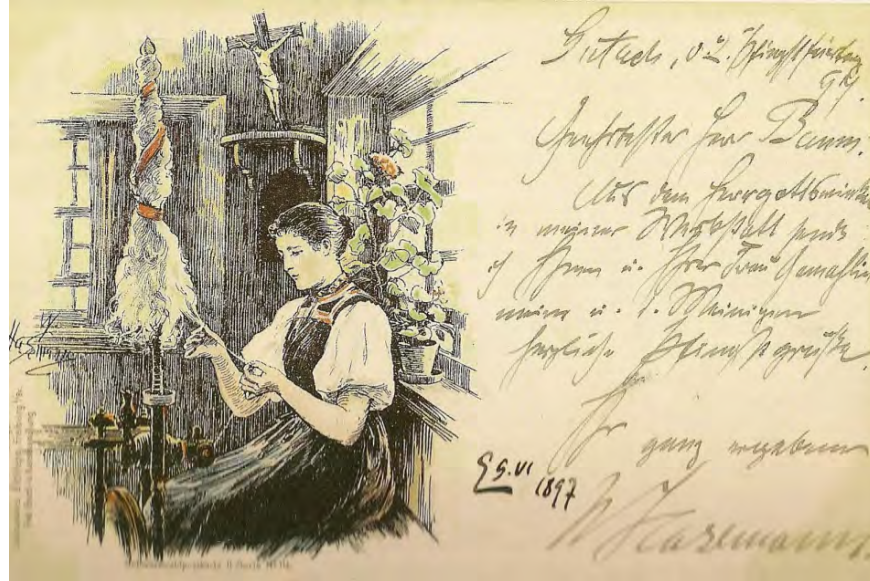 Gutach, d 2. Pfingstfeiertag
97.
Geehrtester Herr Baum.
Aus dem Herrgottswinkel
in meiner Werkstatt sende
ich Ihnen u. Ihrer Frau Gemahlin
meine u. d. Meinigen
herzliche Pfingstgrüße.
Ihr
ganz ergebener
W Hasemann
W.
Hasemann
VI
1897